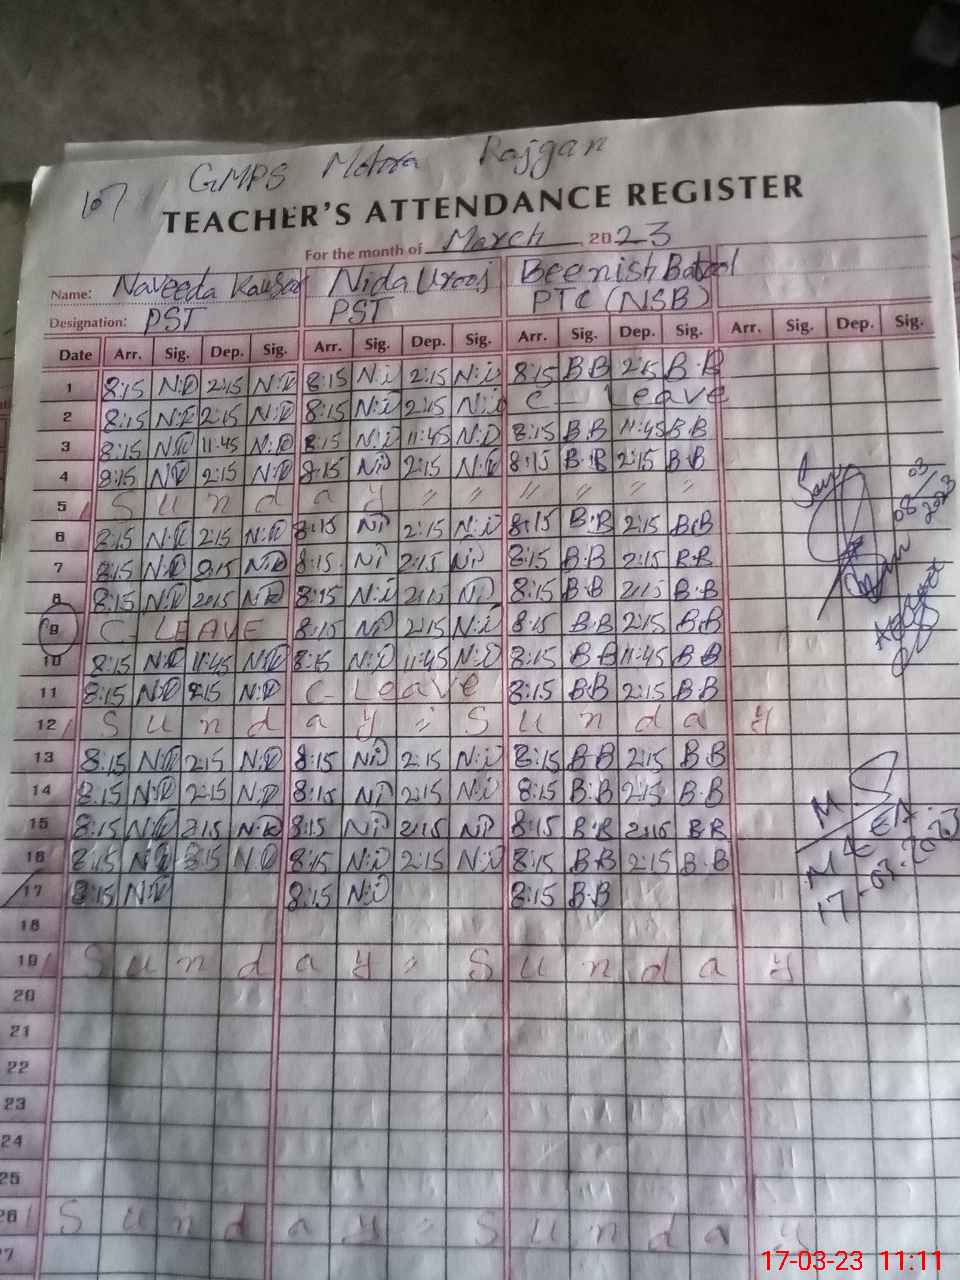 107 GMPS Mohra Rajgan
TEACHER'S ATTENDANCE REGISTER
For the month of March, 2023
Name: Naveeda Kausar Nida Urooj Beenish Batool
Designation: PST PST PTC (NSB)
Date Arr. Sig. Dep. Sig. Arr. Sig. Dep. Sig. Arr. Sig. Dep. Sig. Arr. Sig. Dep. Sig.
1 8:15 N:K 2:15 N:K 8:15 N:i 2:15 N:i 8:15 B.B 2:15 B.B
2 8:15 N:K 2:15 N:K 8:15 N:i 2:15 N:i C - Leave
3 8:15 N:K 11:45 N:K 8:15 N:i 11:45 N:i 8:15 B.B 11:45 B.B
4 8:15 N:K 2:15 N:K 8:15 Ni 2:15 N:i 8:15 B.B 2:15 B.B
5 S u n d a y " " " " " "
6 8:15 N:K 2:15 N:K 8:15 Ni 2:15 N:i 8:15 B.B 2:15 B.B
7 8:15 N:K 2:15 N:K 8:15 Ni 2:15 Ni 8:15 B.B 2:15 B.B
8 8:15 N:K 2:15 N:K 8:15 N:i 2:15 Ni 8:15 B.B 2:15 B.B
9 C - LEAVE 8:15 Ni 2:15 N:i 8:15 B.B 2:15 B.B
10 8:15 N:K 11:45 N:K 8:15 N:i 11:45 N:i 8:15 B B 11:45 B B
11 8:15 N:K 2:15 N:K C - Leave 8:15 B.B 2:15 B B
12 S u n d a y " S u n d a y
13 8:15 N:K 2:15 N:K 8:15 Ni 2:15 N:i 8:15 B B 2:15 B B
14 8:15 N:K 2:15 N:K 8:15 Ni 2:15 N:i 8:15 B:B 2:15 B.B
15 8:15 N:K 2:15 N:K 8:15 Ni 2:15 Ni 8:15 B.B 2:15 B B
16 8:15 N:K 2:15 N:K 8:15 N:i 2:15 N:i 8:15 B B 2:15 B.B
17 8:15 N:K 8:15 N:i 8:15 B.B
18
19 S u n d a y " S u n d a y
20
21
22
23
24
25
26 S u n d a y " S u n d a y
27
08/03/2023
MEA
17-03-2023
17-03-23 11:11